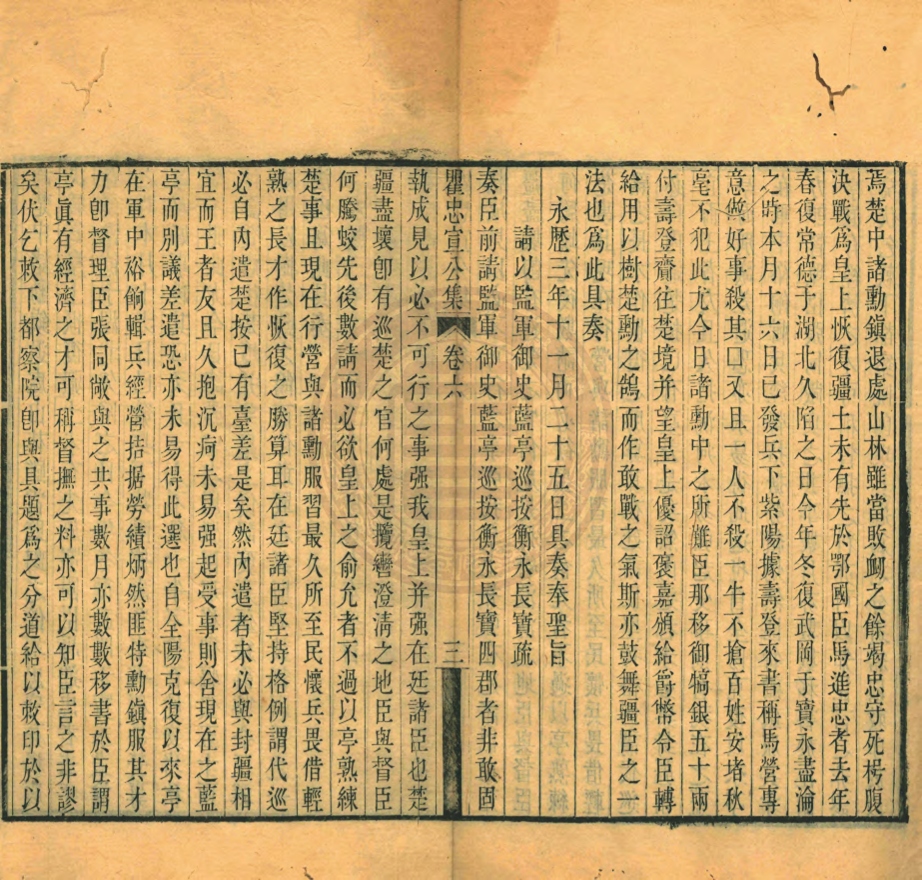 焉楚中諸勳鎮退處山林雖當敗衂之餘竭忠守死枵腹
決戰爲皇上恢復疆土未有先於鄂國臣馬進忠者去年
春復常德于湖北久陷之日今年冬復武岡于寶永盡淪
之時本月十六日已發兵下紫陽據壽登來書稱馬營專
意做好事殺其口又且一人不殺一牛不搶百姓安堵秋
毫不犯此尤今日諸勳中之所難臣那移御犒銀五十兩
付壽登齎往楚境并望皇上優詔褒嘉頒給爵幣令臣轉
給用以樹楚勳之鵠而作敢戰之氣斯亦鼓舞疆臣之一
法也爲此具奏
永歷三年十一月二十五日具奏奉聖旨
請以監軍御史藍亭巡按衡永長寶疏
奏臣前請監軍御史藍亭巡按衡永長寶四郡者非敢固
瞿忠宣公集
卷六
三
執成見以必不可行之事强我皇上并强在廷諸臣也楚
疆盡壞卽有巡楚之官何處是攬轡澄清之地臣與督臣
何騰蛟先後數請而必欲皇上之俞允者不過以亭熟練
楚事且現在行營與諸勳服習最久所至民懷兵畏借輕
熟之長才作恢復之勝算耳在廷諸臣堅持格例謂代巡
必自內遣楚按已有臺差是矣然內遣者未必與封疆相
宜而王者友且久抱沉疴未易强起受事則舍現在之藍
亭而別議差遣恐亦未易得此選也自全陽克復以來亭
在軍中裕餉輯兵經營拮据勞績炳然匪特勳鎮服其才
力卽督理臣張同敞與之共事數月亦數數移書於臣謂
亭眞有經濟之才可稱督撫之料亦可以知臣言之非謬
矣伏乞敕下都察院卽與具題爲之分道給以敕印於以